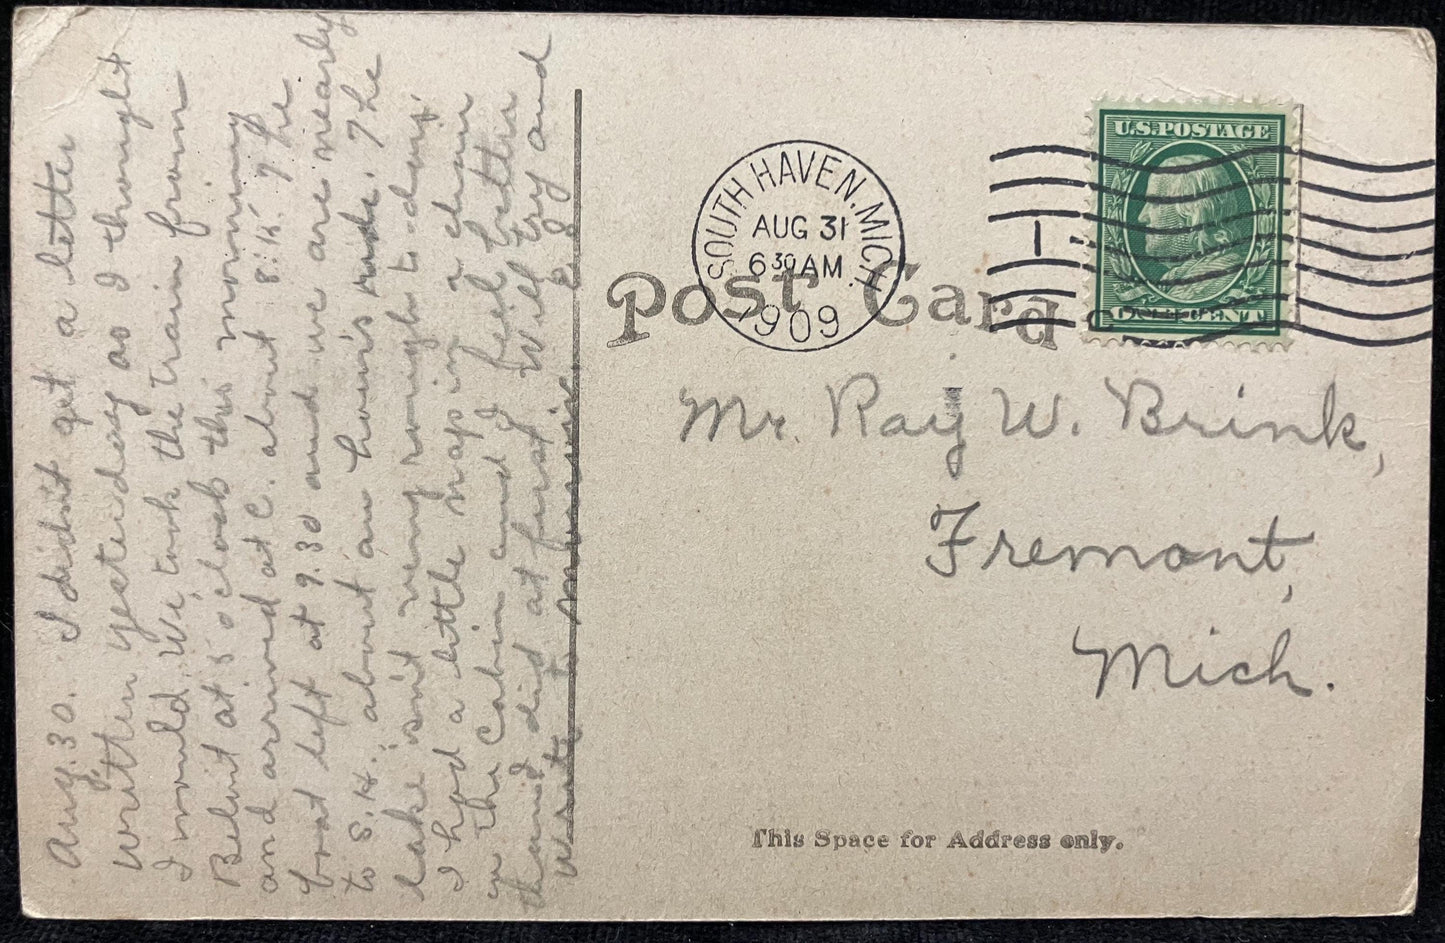 Aug. 30. I didn't get a letter
written yesterday as I thought
I would. We took the train from
Beloit at 5 o clock this morning
and arrived at C. about 8:15. The
boat left at 9.30 and we are nearly
to S. H. about an hour's ride. The
lake isn't very rough to-day.
I had a little nap in a chair
in the cabin and I feel better
than I did at first. Will try and
write to
SOUTH HAVEN, MICH.
AUG 31
6 30 AM
1909
U.S. POSTAGE
ONE CENT
Post Card
Mr. Ray W. Brink,
Fremont,
Mich.
This Space for Address only.